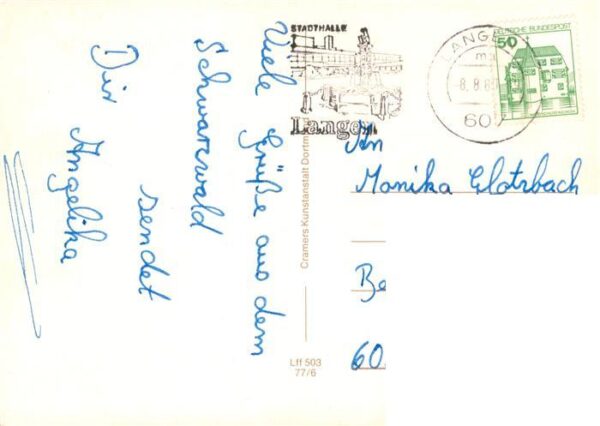 Viele Grüße aus dem
Schwarzwald
sendet
Dir Angelika
Cramers Kunstanstalt Dortm
Lff 503
77/6
STADTHALLE
Langen
LANGE
8.8.8
60
DEUTSCHE BUNDESPOST
50
An
Monika Glotzbach
Be
60